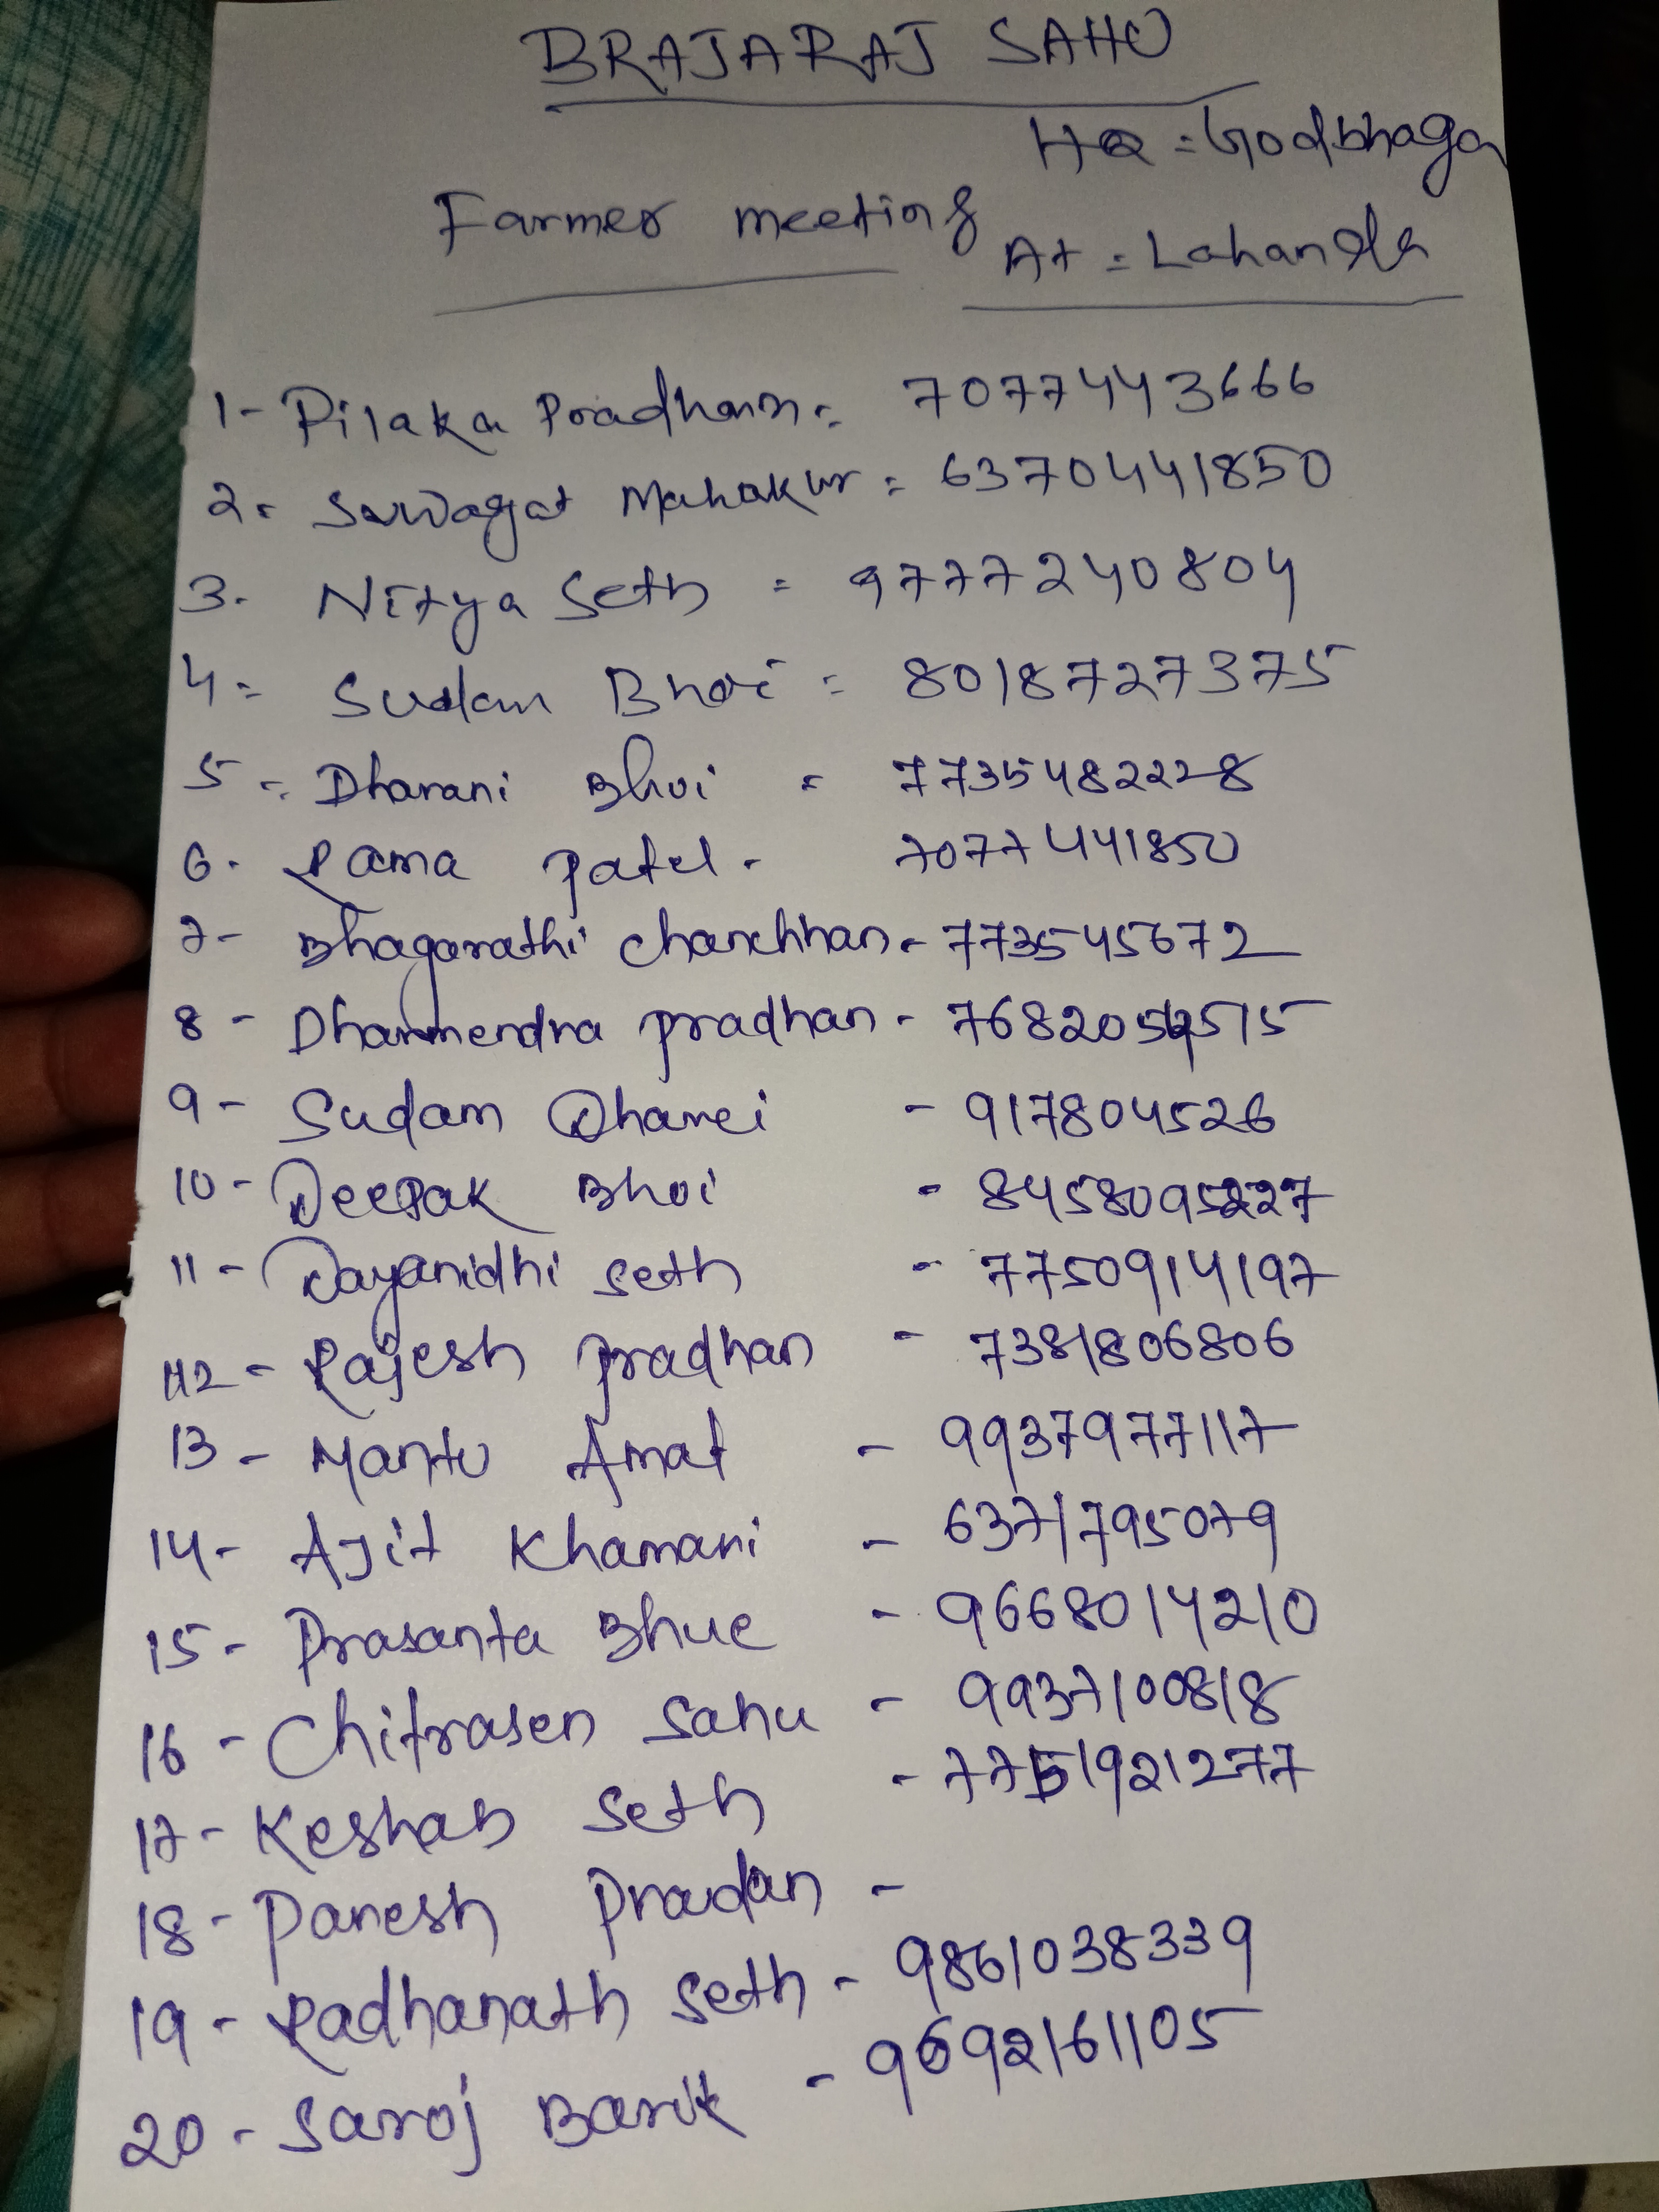 BRAJARAJ SAHU
HQ = Godbhaga
Farmer meeting
At = Lahanda
1- Pilaka Pradhan = 7077443666
2. Swagat Mahakur = 6370441850
3. Nitya Seth = 9777240804
4 = Sudam Bhoi = 8018727375
5 = Dharani Bhoi = 7735482228
6. Rama Patel - 7077441850
7- Bhagarathi Chanchhan - 773545672
8- Dharmendra pradhan -
9- Sudam Dharei - 917804526
10- Deepak Bhoi - 8458095227
11- Dayanidhi Seth - 7750914197
12- Rajesh pradhan - 7381806806
13- Mantu Amat - 9937977117
14- Ajit Khamari - 6371795079
15- Prasanta Bhue - 9668014210
16- Chitrasen Sahu - 9937100818
17- Keshab Seth - 7751921277
18- Panesh Pradan -
19- Radhanath Seth - 9861038339
20- Saroj Barik - 9692161105